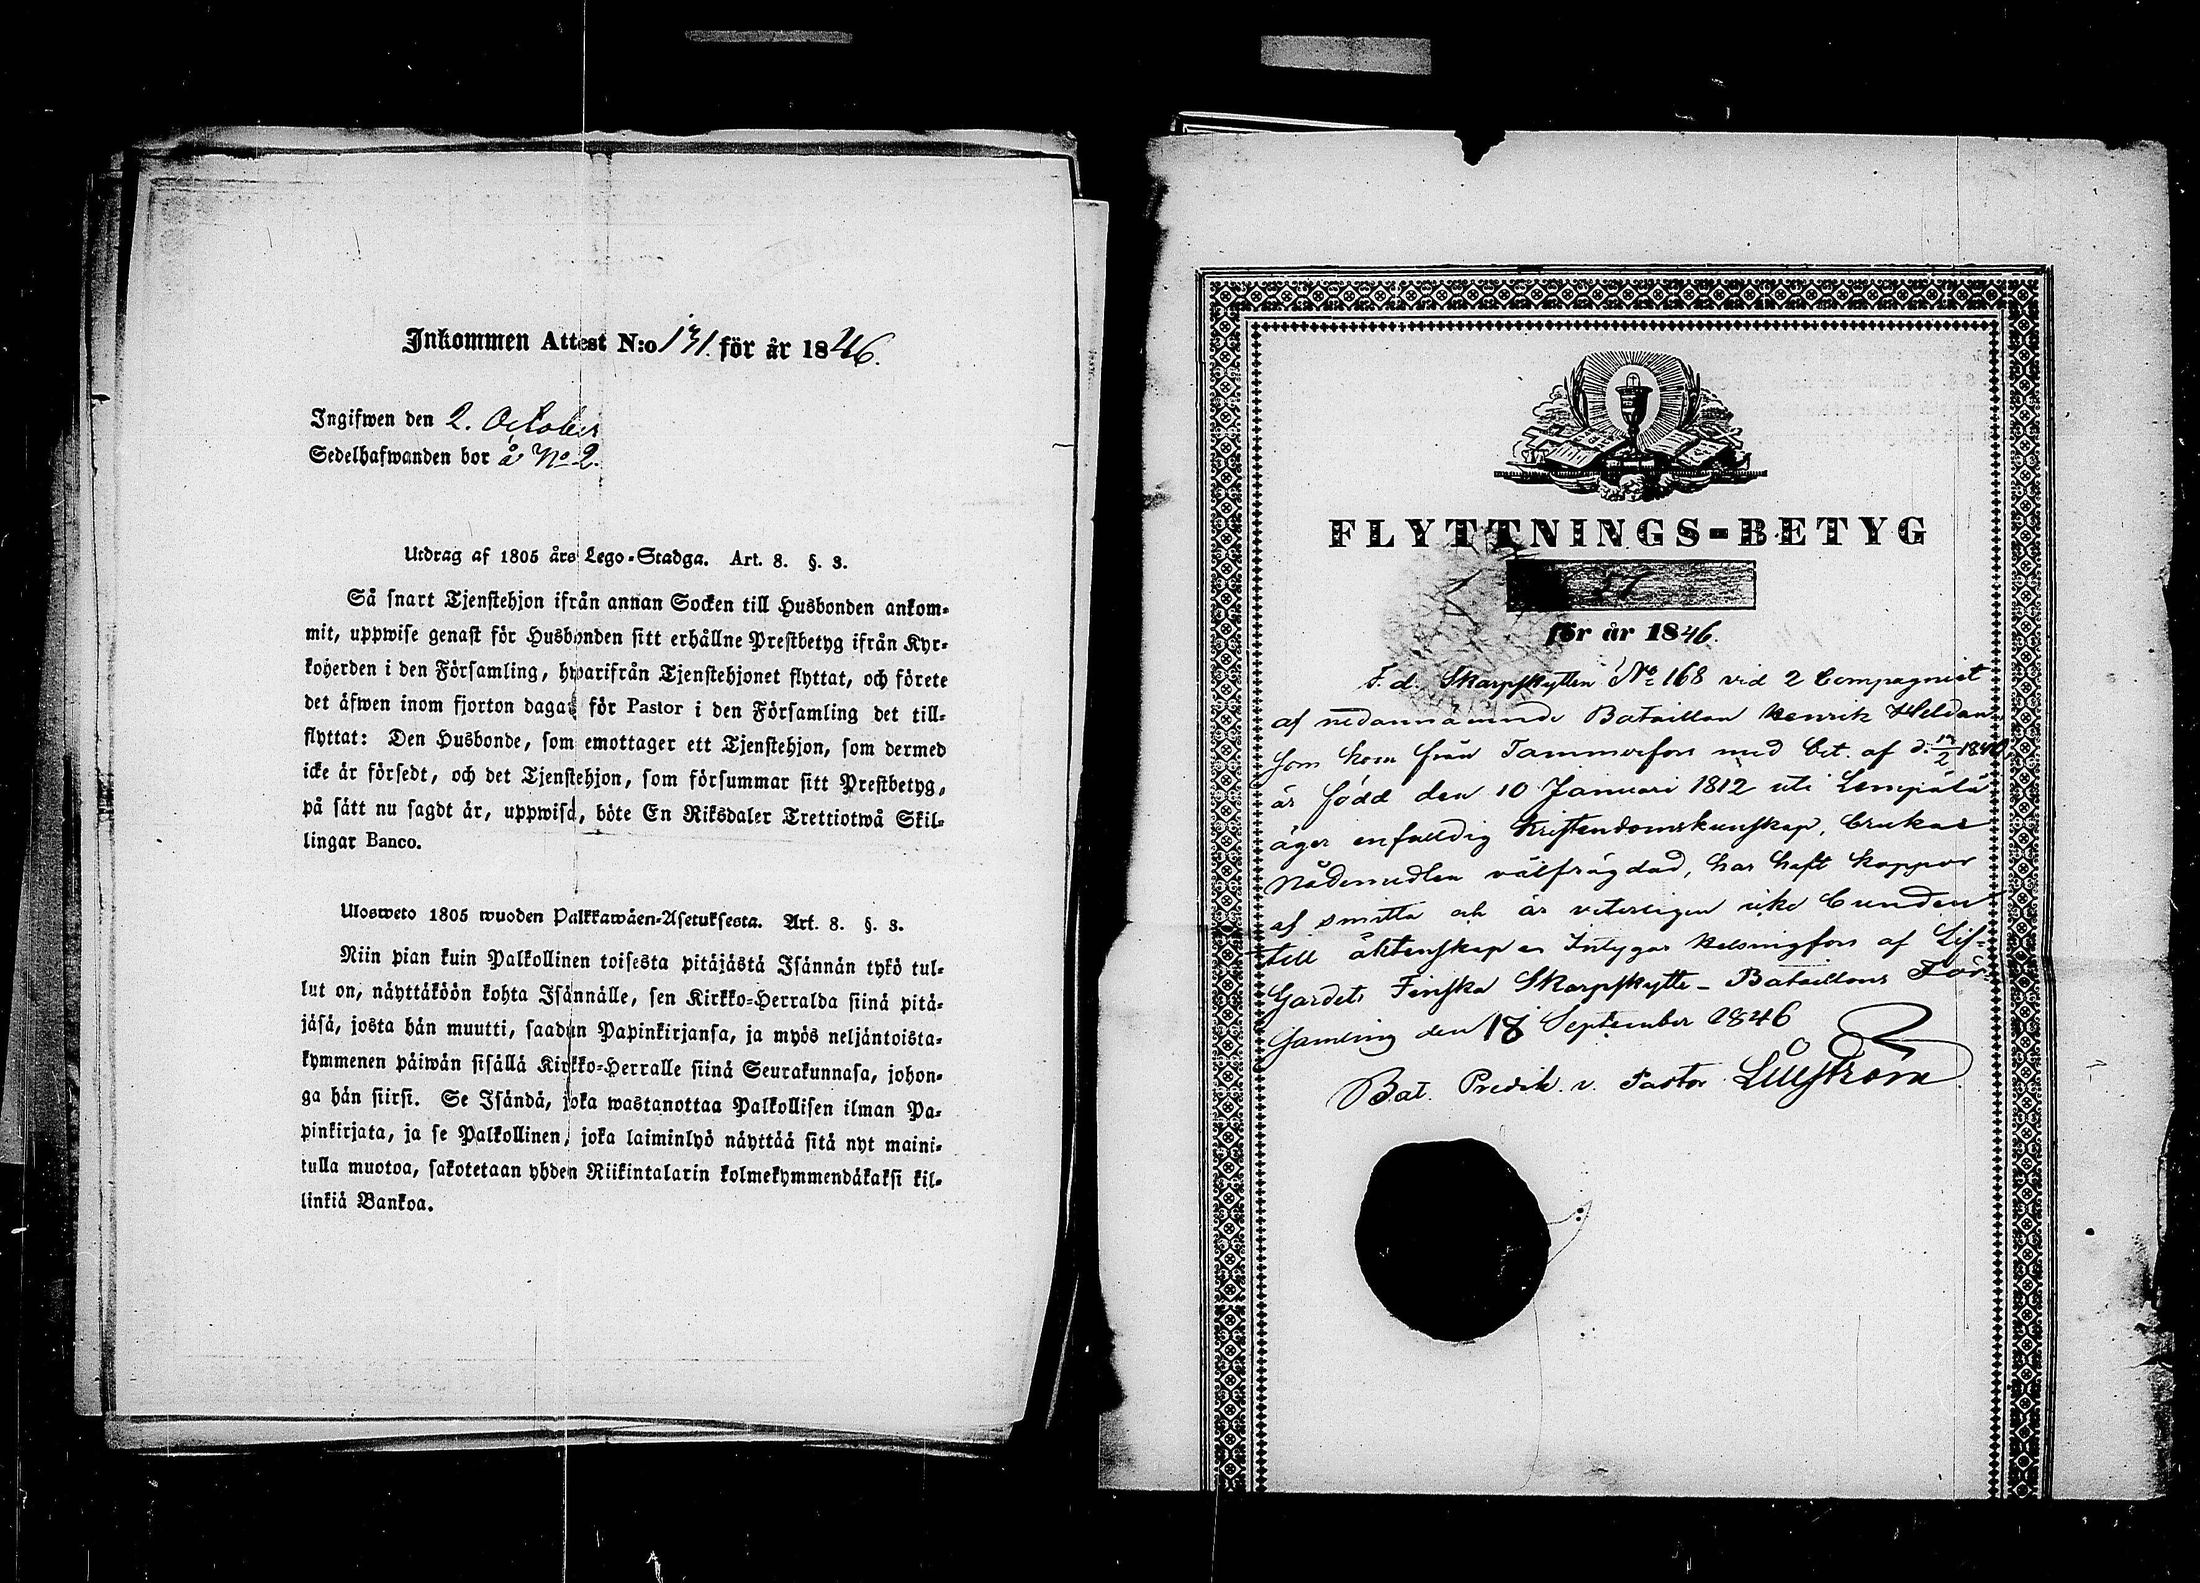 Inkommen Attest N:o 131. för år 1846.
Ingifwen den 2. October
Sedelhafwanden bor å No 2.
Utdrag af 1805 års Lego-Stadga. Art. 8. §. 3.
Så snart Tjenstehjon ifrån annan Socken till Husbonden ankom-
mit, uppwise genast för Husbonden sitt erhållne Prestbetyg ifrån Kyr-
koherden i den Församling, hwarifrån Tjenstehjonet flyttat, och förete
det äfwen inom fjorton dagar för Pastor i den Församling det till-
flyttat: Den Husbonde, som emottager ett Tjenstehjon, som dermed
icke är försedt, och det Tjenstehjon, som försummar sitt Prestbetyg,
på sätt nu sagdt är, uppwisa, böte En Riksdaler Trettiotwå Skil-
lingar Banco.
Ulosweto 1805 wuoden Palkkawäen-Asetuksesta. Art. 8. §. 3.
Niin pian kuin Palkollinen toisesta pitäjästä Isännän tykö tul-
lut on, näyttäköön kohta Isännälle, sen Kirkko-Herralda siinä pitä-
jäsä, josta hän muutti, saadun Papinkirjansa, ja myös neljäntoista-
kymmenen päiwän sisällä Kirkko-Herralle siinä Seurakunnasa, johon-
ga hän siirsi. Se Isändä, joka wastanottaa Palkollisen ilman Pa-
pinkirjata, ja se Palkollinen, joka laiminlyö näyttää sitä nyt maini-
tulla muotoa, sakotetaan yhden Riikintalarin kolmekymmendäkaksi kil-
linkiä Bankoa.
FLYTTNINGS-BETYG
för år 1846.
F. d. Skarpskytten No 168 vid 2 Compagniet
af nedannämnde Bataillon Henrik Heldan
som kom från Tammerfors med bet. af d.
är född den 10 Januari 1812 uti Lempälä
äger enfaldig Kristendomskunskap, brukar
Nådemedlen välfrägdad, har haft koppor
af smitta och är veterligen icke bunden
till äktenskap Intygar Helsingfors af Lif-
Gardets Finska Skarpskytte-Bataillons För-
samling den 18 September 1846
Bat. Predik. v. Pastor